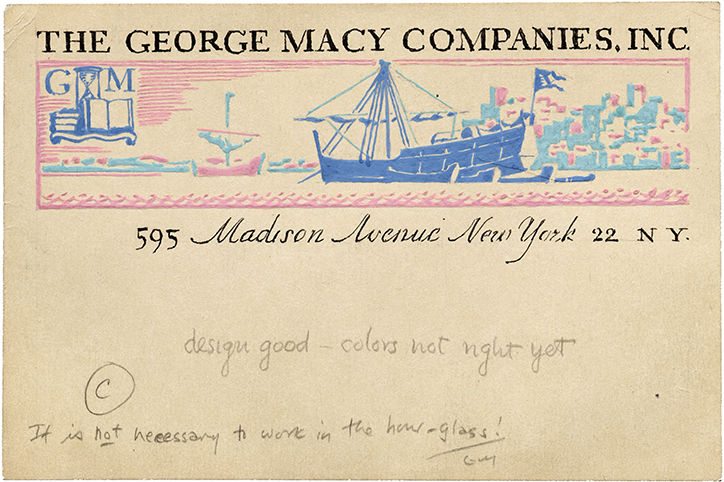 THE GEORGE MACY COMPANIES, INC.
G M
595 Madison Avenue New York 22 N Y.
design good – colors not right yet
C
It is not necessary to work in the hour-glass!
GM